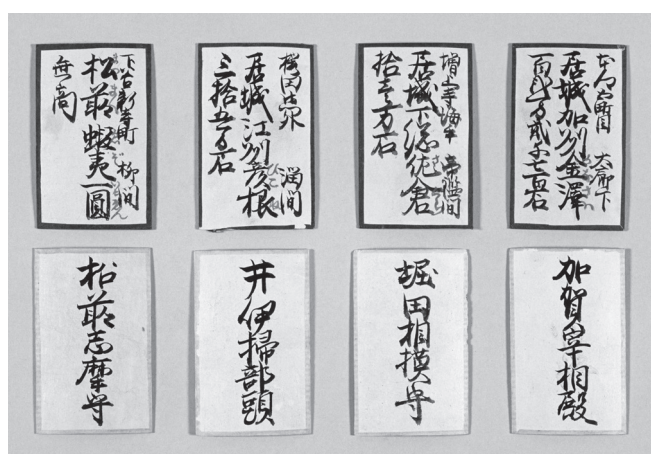 大廊下
居城加州金澤
百弐万弐千七百石
帝鑑間
居城下総佐倉
拾壱万石
溜間
居城江州彦根
ひこね
三拾五万石
下谷新寺町 柳間
松前蝦夷一圓
無高
加賀宰相殿
堀田相模守
井伊掃部頭
松前志摩守